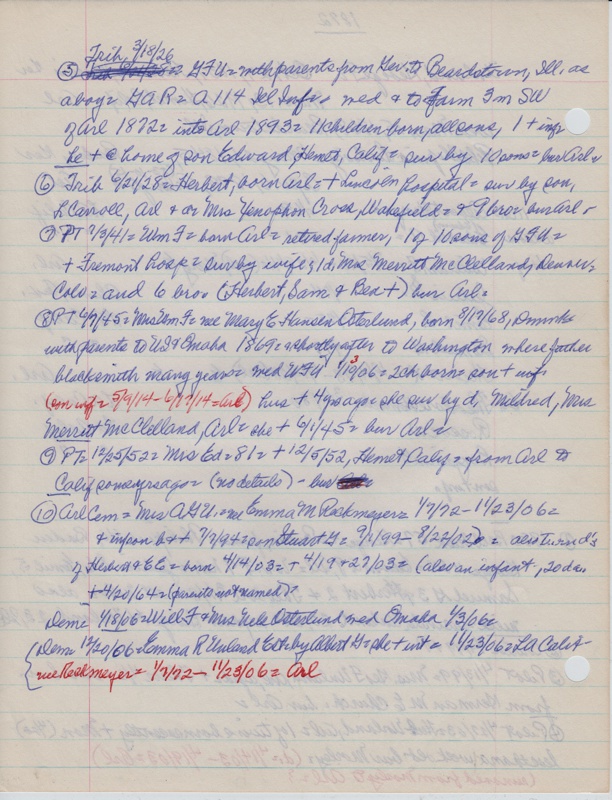 Trib, 3/18/26
⑤ = GFU = with parents from Ger. to Beardstown, Ill, as
above = GAR = A 114 Ill Inf = med & to Farm 3 m SW
of Arl 1872 = into Arl 1893 = 11 children born, all sons, 1 + inf
he + @ home of son Edward, Hemet, Calif = sur by 10 sons = bur Arl =
⑥ Trib 6/21/28 = Herbert, born Arl = + Lincoln hospital = sur by son,
L Carroll, Arl & da Mrs Xenophon Cross, Wakefield = & 9 bro = bur Arl -
⑦ PT 2/3/41 = Wm F = born Arl = retired farmer, 1 of 10 sons of GFU =
+ Fremont Hosp = sur by wife, 1 d, Mrs Merritt McClelland, Denver =
Colo = and 6 bro (Herbert, Sam & Ben +) bur Arl =
⑧ PT 6/7/45 = Mrs Wm F = nee Mary E Hansen Osterlund, born 8/17/68, Denmk
with parents to US & Omaha 1869 = shortly after to Washington where father
blacksmith many years = med WFU 1/3/06 = 2 ch born = son + inf
(son inf = 5/9/14 - 6/17/14 = Arl) hus + 4 yrs ago = she sur by d, Mildred, Mrs
Merritt McClelland, Arl = she + 6/1/45 = bur Arl =
⑨ PT = 12/25/52 = Mrs Ed = 81 = + 12/5/52, Hemet Calif = from Arl to
Calif some yrs ago = (no details) - bur
⑩ Arl Cem = Mrs A G U = nee Emma M Rackmeyer = 1/7/72 - 11/23/06 =
& inf son b & + 7/7/94 = son Stuart G = 9/1/99 - 8/22/02 = also twin d's
of Herbert & EE = born 4/14/03 = + 4/19 & 27/03 = (also an infant, 20 da
+ 4/20/64 = (parents not named)?
Dem = 1/18/06 = Will F & Mrs Nele Osterlund med Omaha 1/3/06 =
Dem 12/20/06 = Emma R Unland Est by Albert G = she + int = 11/23/06 = LA Calif -
nee Rackmeyer = 1/7/72 - 11/23/06 = Arl